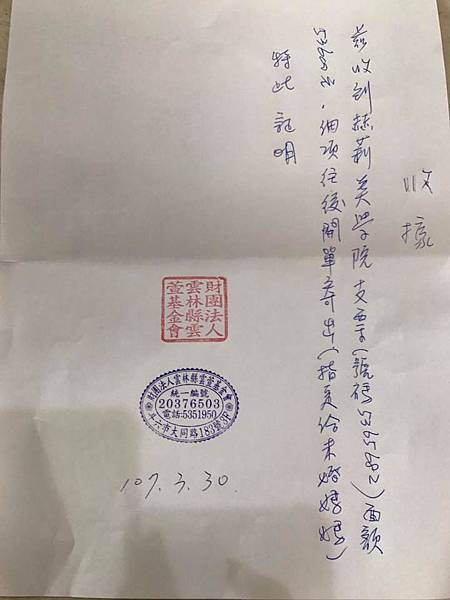 收據
茲收到赫莉美學院支票(號碼)面額
元,細項往後開單寄出(指定給未婚媽媽)
特此証明
財團法人
雲林縣雲
萱基金會
財團法人雲林縣雲萱基金會
統一編號
20376503
電話:5351950
斗六市大同路183號3F
107.3.30.